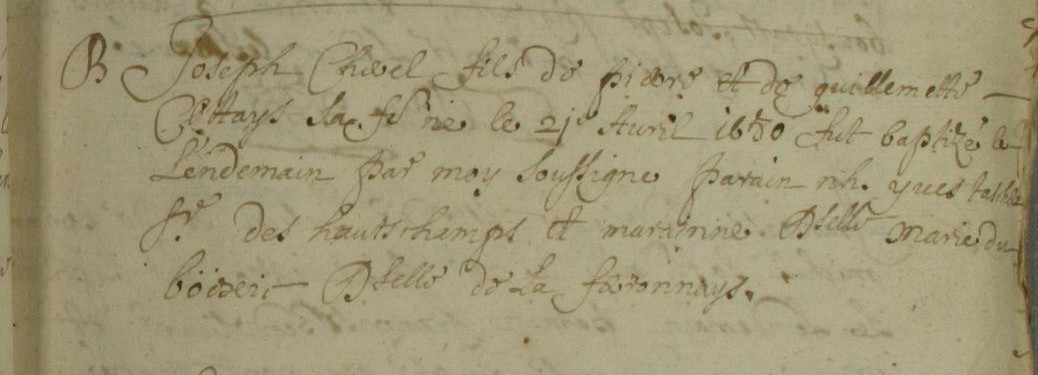 B Joseph Chevel fils de pierre et de guillemette
Ettays sa fe né le 21e Avril 1650 fut baptizé le
Lendemain par moy Soussigne parain nh. yves
Sr des hautschamps et marainne Dselle Marie du
Dselle de La